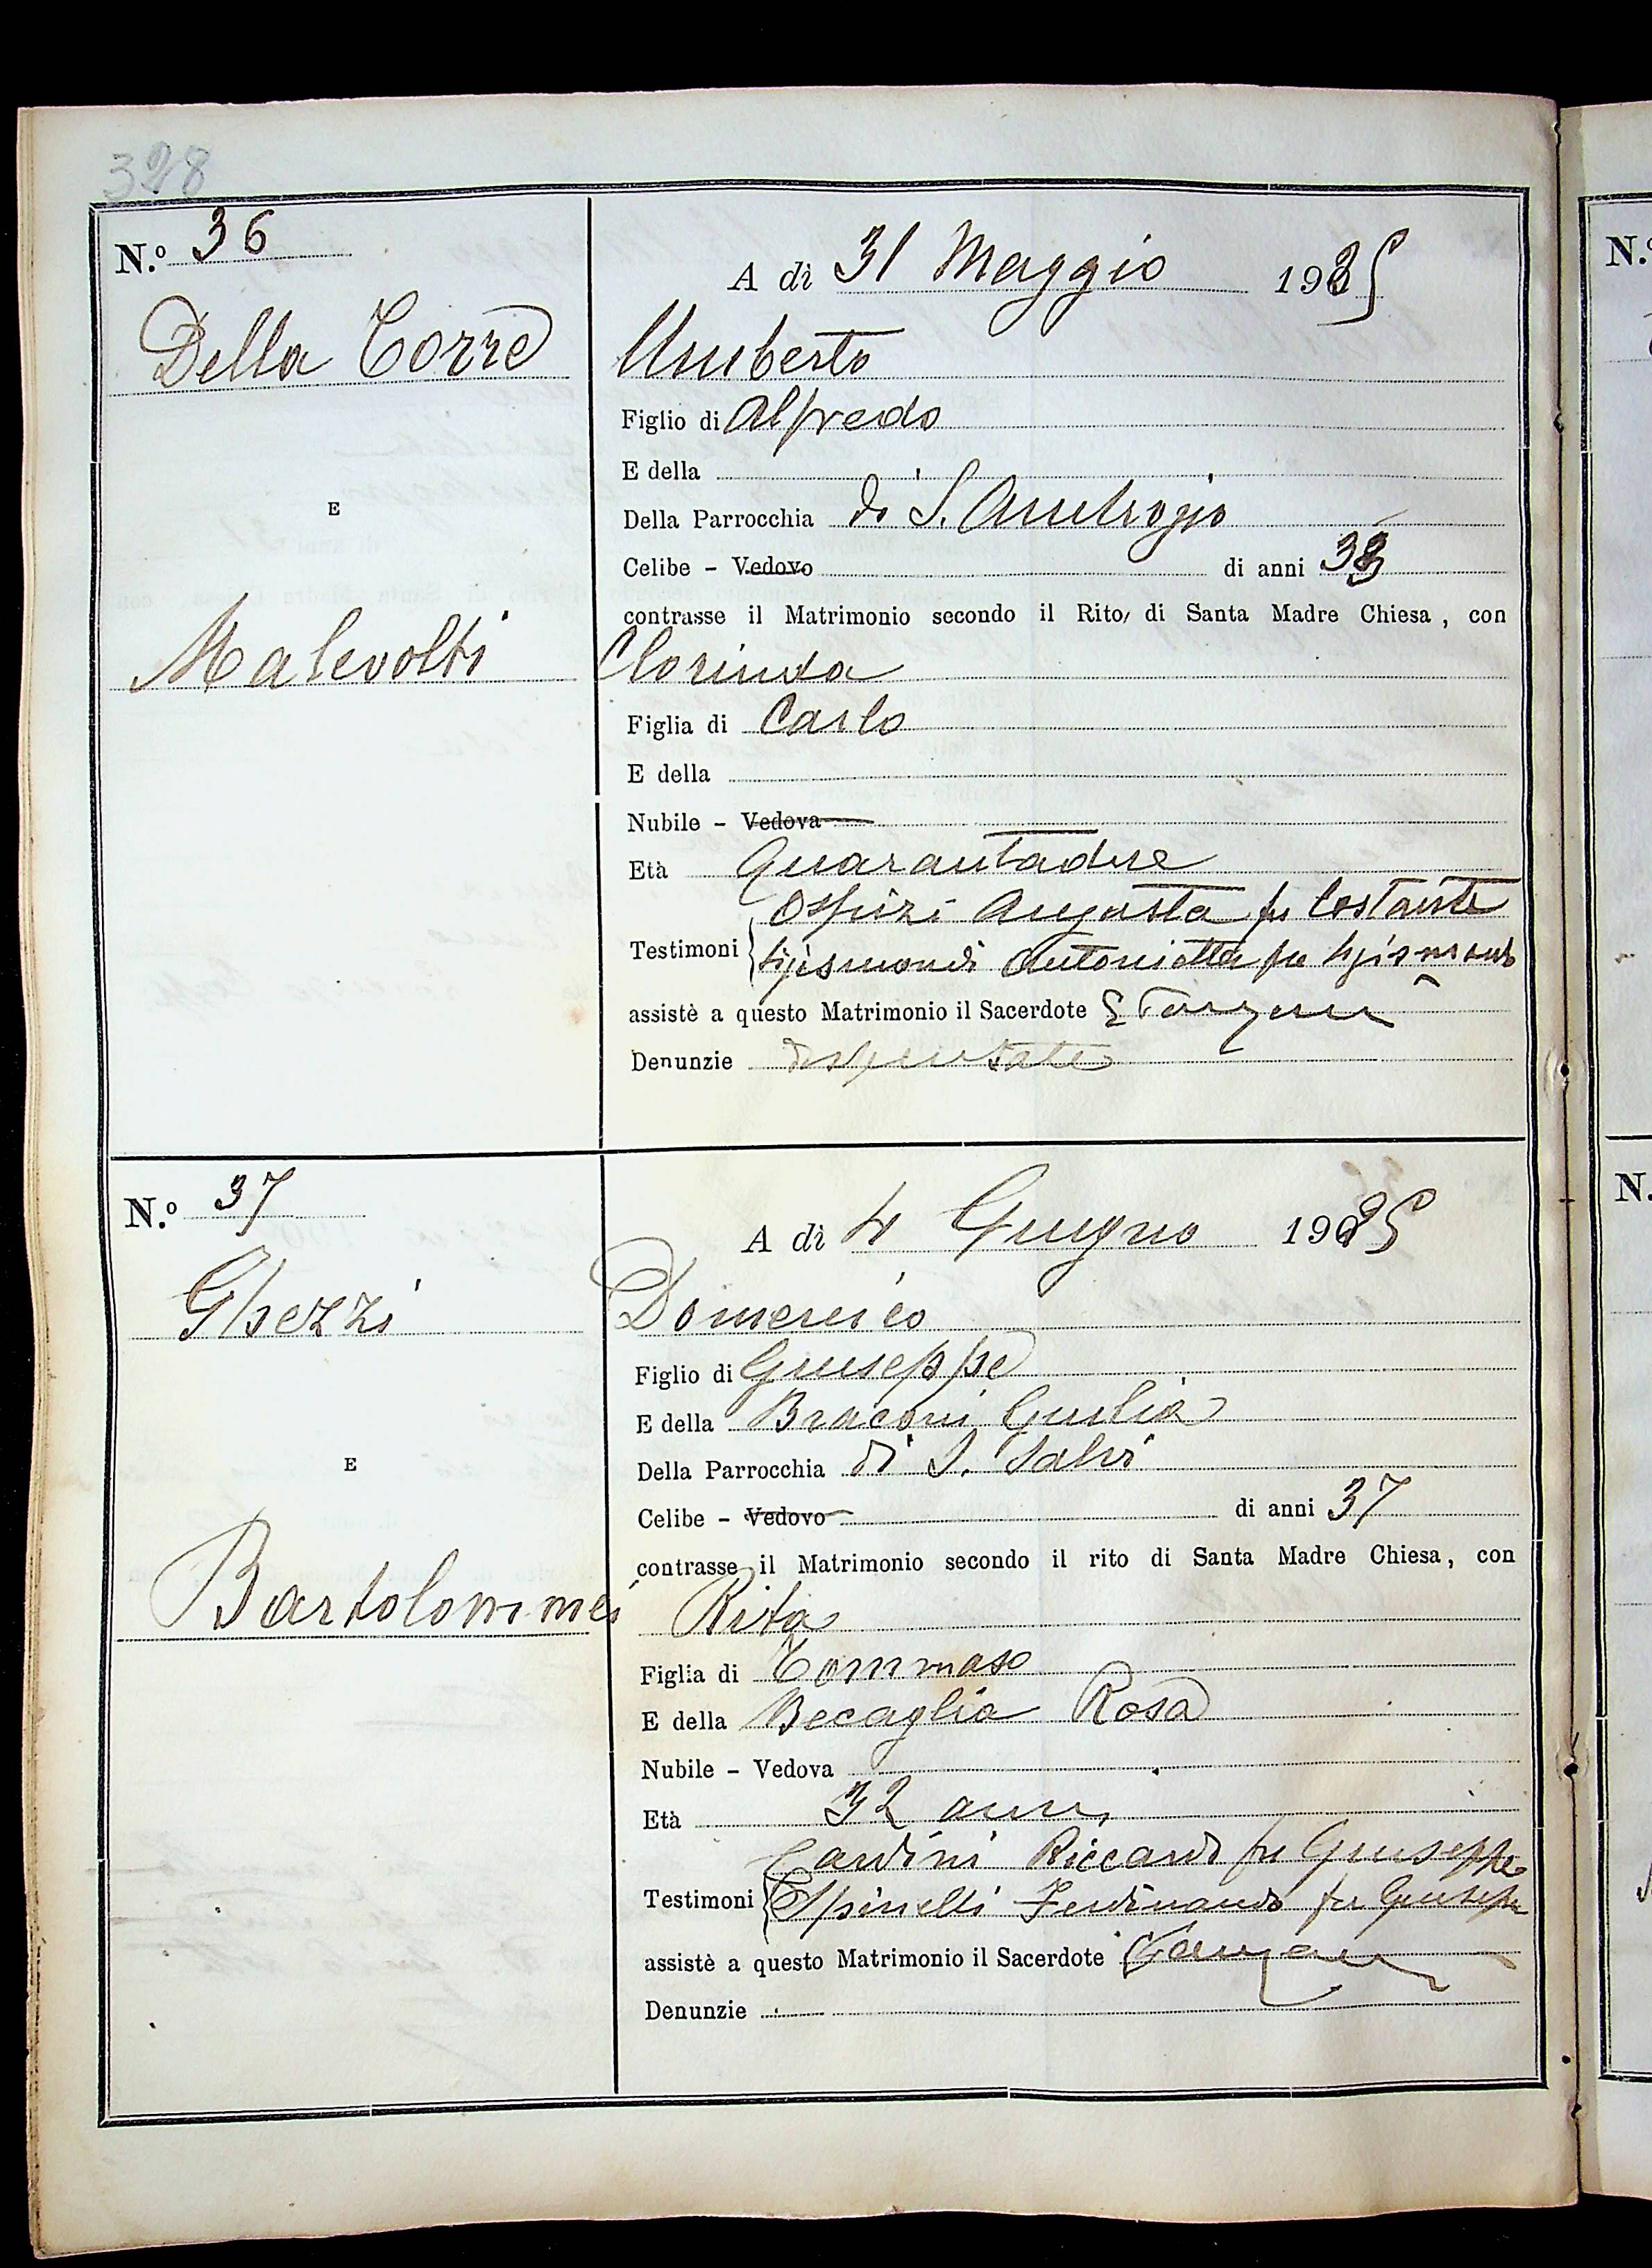 328
N.º 36
A dì 31 Maggio 1925
Della Torre
Umberto
Figlio di Alfredo
E della
E
Della Parrocchia di S. Ambrogio
Celibe - Vedovo di anni 33
contrasse il Matrimonio secondo il Rito di Santa Madre Chiesa, con
Malevolti
Clorinda
Figlia di Carlo
E della
Nubile - Vedova
Età Quarantadue
Augusta fu Costante
Testimoni Sigismondi Antonietta fu Sigismondo
assistè a questo Matrimonio il Sacerdote
Denunzie dispensate
N.º 37
A dì 4 Giugno 1925
Ghezzi
Domenico
Figlio di Giuseppe
E della Braconi Giulia
E
Della Parrocchia di S. Salvi
Celibe - Vedovo di anni 37
contrasse il Matrimonio secondo il rito di Santa Madre Chiesa, con
Bartolommei
Rita
Figlia di Tommaso
E della Becaglia Rosa
Nubile - Vedova
Età 32 anni
Riccardo fu Giuseppe
Testimoni Spinelli Ferdinando fu Giuseppe
assistè a questo Matrimonio il Sacerdote
Denunzie
N.º
N.